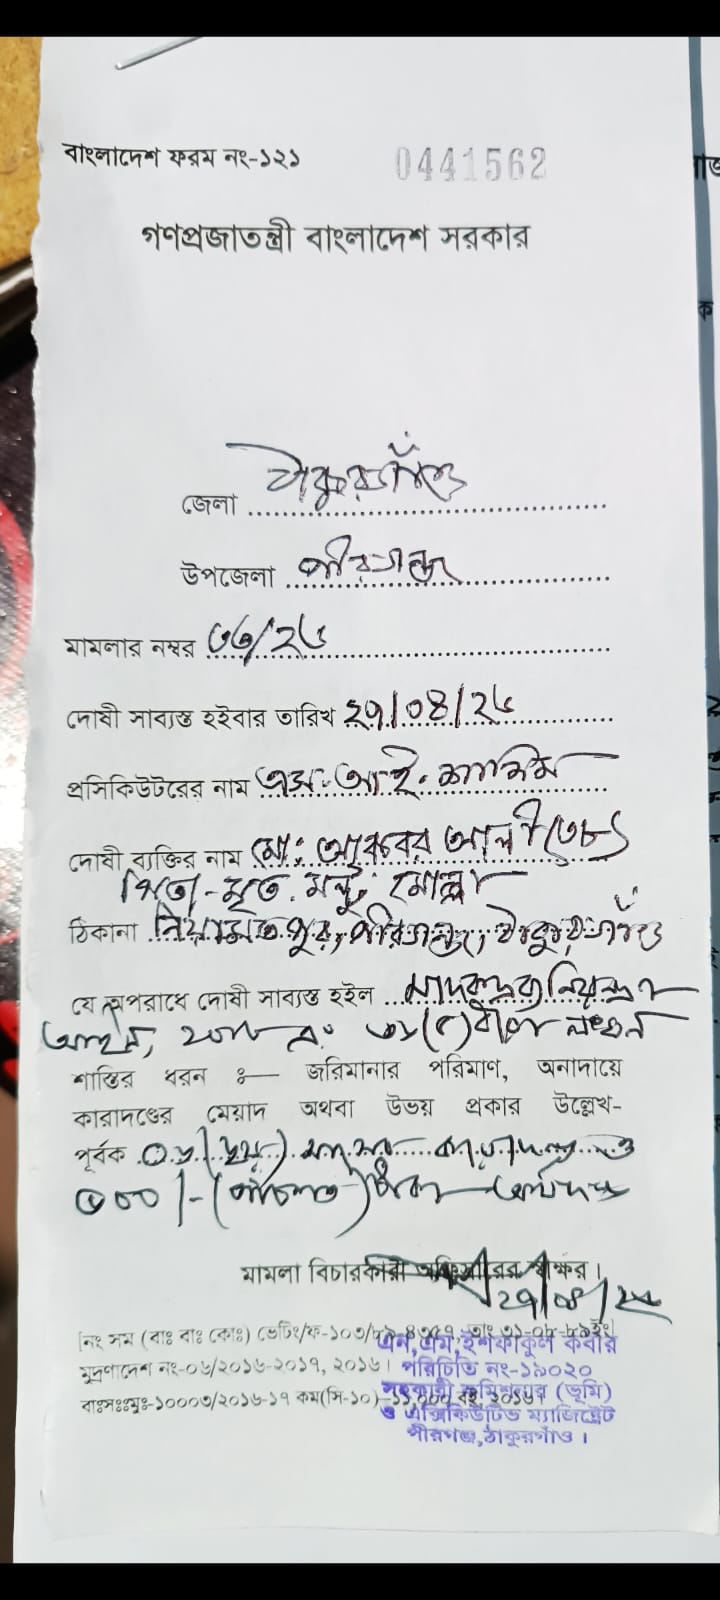 বাংলাদেশ ফরম নং-১২১
0441562
গণপ্রজাতন্ত্রী বাংলাদেশ সরকার
জেলা ঠাকুরগাঁও
উপজেলা পীরগঞ্জ
মামলার নম্বর ৩৬/২৬
দোষী সাব্যস্ত হইবার তারিখ ২৭/০৪/২৬
প্রসিকিউটরের নাম এস.আই.
দোষী ব্যক্তির নাম মো: আকবর আলী (৩৮)
পিতা-মৃত. মন্টু মোল্লা
ঠিকানা নিয়ামতপুর, পীরগঞ্জ, ঠাকুরগাঁও
যে অপরাধে দোষী সাব্যস্ত হইল মাদকদ্রব্য নিয়ন্ত্রণ
আইন, ২০১৮ এর লংঘন
শাস্তির ধরন ঃ— জরিমানার পরিমাণ, অনাদায়ে
কারাদণ্ডের মেয়াদ অথবা উভয় প্রকার উল্লেখ-
পূর্বক ০৬ (ছয়) মাসের কারাদন্ড ও
৫০০/- (পাঁচশত) টাকা অর্থদন্ড
মামলা বিচারকারী অফিসারের স্বাক্ষর।
২৭/০৪/২৬
[নং সম (বাঃ বাঃ কোঃ) ভেটিং/ফ-১০৩/
এন,এম,ইশফাকুল কবীর
মুদ্রণাদেশ নং-০৬/২০১৬-২০১৭, ২০১৬। পরিচিতি নং-১৯০২০
বাঃসঃমুঃ-১০০০৩/২০১৬-১৭ কম(সি-১০)
সহকারী কমিশনার (ভূমি)
ও এক্সিকিউটিভ ম্যাজিষ্ট্রেট
পীরগঞ্জ,ঠাকুরগাঁও।